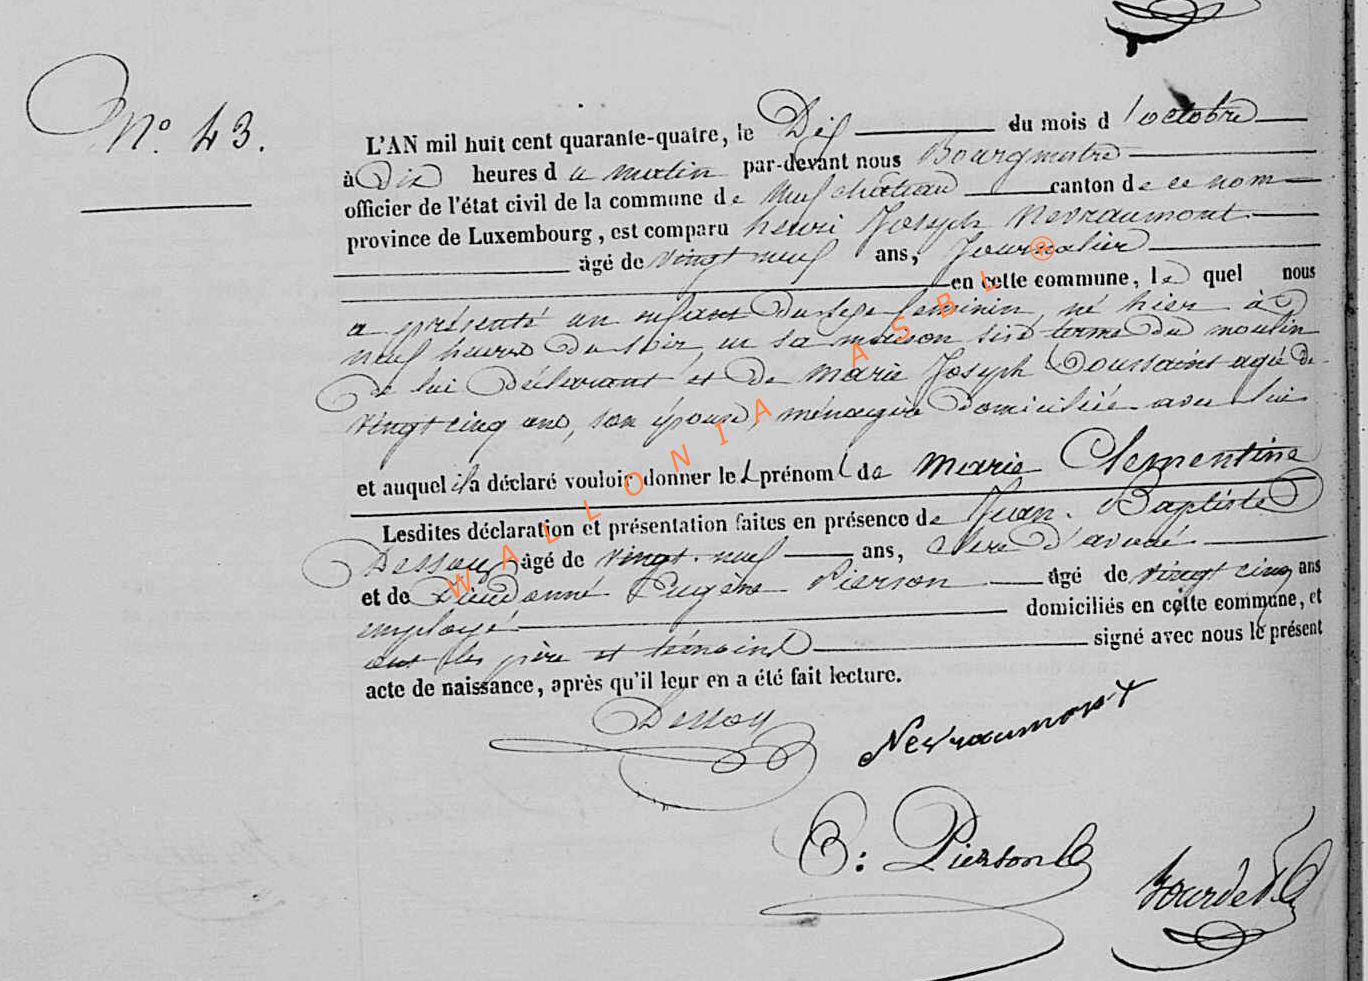 N.° 43.
L'AN mil huit cent quarante-quatre, le Dix du mois d'octobre
à Dix heures du matin par-devant nous Bourgmestre
officier de l'état civil de la commune de Neufchâteau canton de ce nom
province de Luxembourg, est comparu henri Joseph Nevraumont
âgé de vingt neuf ans, Journalier
en cette commune, lequel nous
a présenté un enfant du sexe feminin, né hier à
neuf heures du soir, en sa maison sise terme du moulin
De lui Déclarant et de Marie Joseph Toussaint agée de
vingt cinq ans, son épouse, ménagère Domiciliée avec lui
et auquel il a déclaré vouloir donner les prénoms de Marie Clementine
Lesdites déclaration et présentation faites en présence de Jean-Baptiste
Dessoy âgé de vingt-neuf ans, clerc d'avoué
et de Dieudonné Eugène Pierson âgé de vingt cinq ans
employé domiciliés en cette commune, et
ont les père et témoins signé avec nous le présent
acte de naissance, après qu'il leur en a été fait lecture.
Dessoy
Nevraumont
E: Pierson
WALLONIA ASBL ®